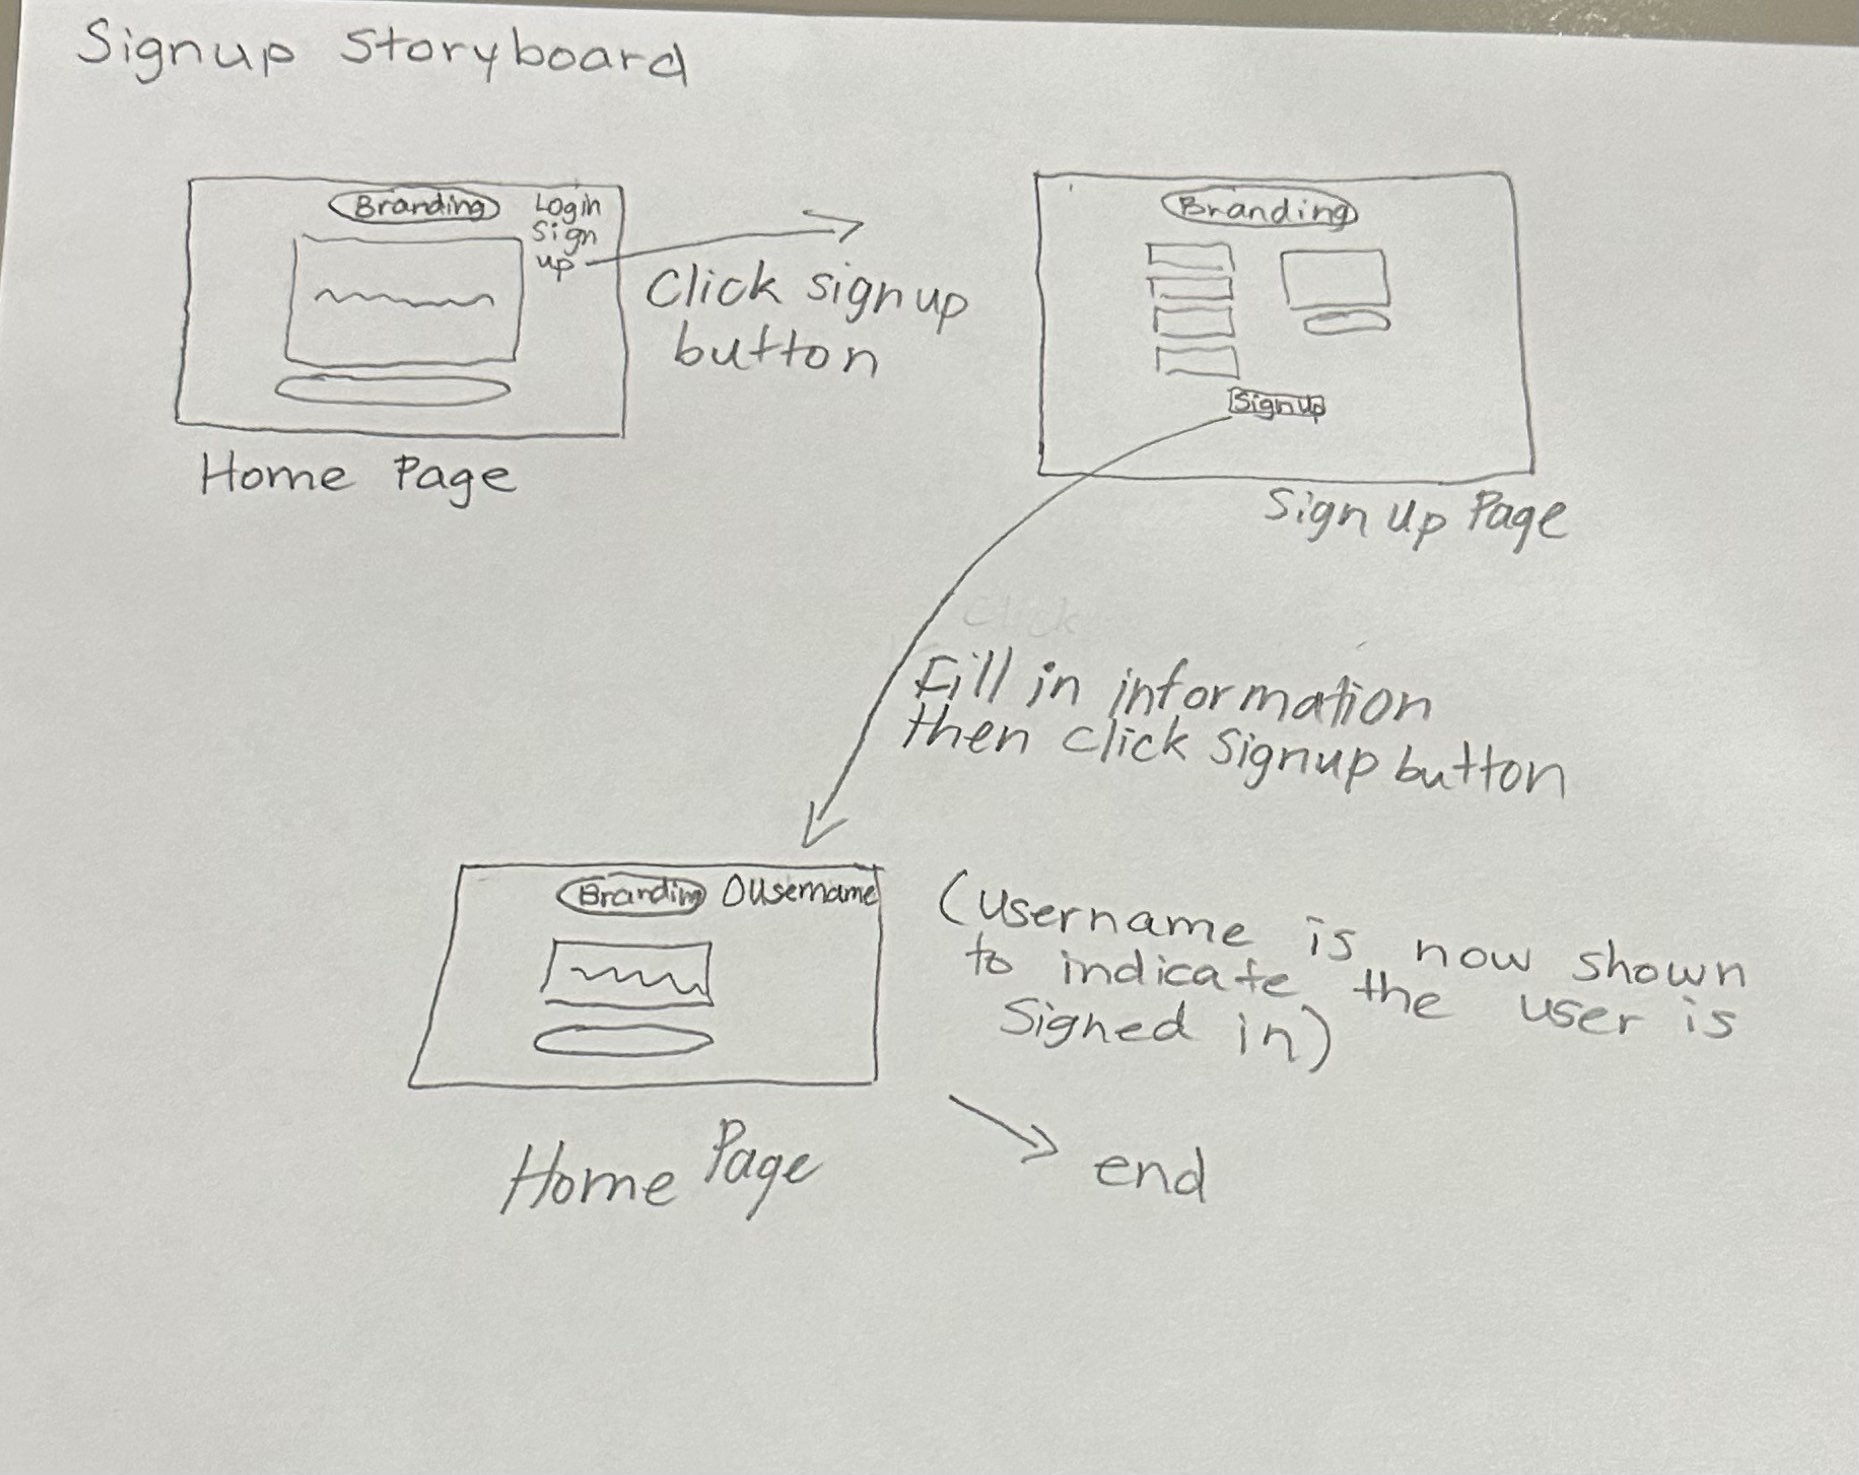 Signup Storyboard
Branding
Login
Sign
up
Click signup
button
Home Page
Branding
Signup
Sign Up Page
Click
Fill in information
then click Signup button
Branding Username
(username is now shown
to indicate the user is
Signed in)
Home Page
end